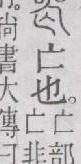 亡也。亡部
亡非
尚書大傳曰